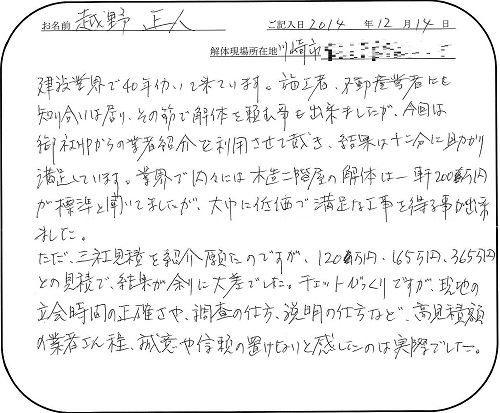 お名前 越野 正人 ご記入日 2014 年 12 月 14 日
解体現場所在地 川崎市
建設業界で40年働いて来ています。施工者、不動産業者にも
知り合いは居り、その筋で解体を頼む事も出来ましたが、今回は
御社HPからの業者紹介を利用させて戴き、結果は十二分に助かり
満足しています。業界で内々には木造二階屋の解体は一軒200万円
が標準と聞いてましたが、大巾に低価で満足な工事を得る事が出来
ました。
ただ、三社見積を紹介願たのですが、120万円、165万円、365万円
との見積で、結果が余りに大差でした。チョットびっくりですが、現地の
立会時間の正確さや、調査の仕方、説明の仕方など、高見積額
の業者さん程、誠意や信頼の置けないと感じたのは実際でした。